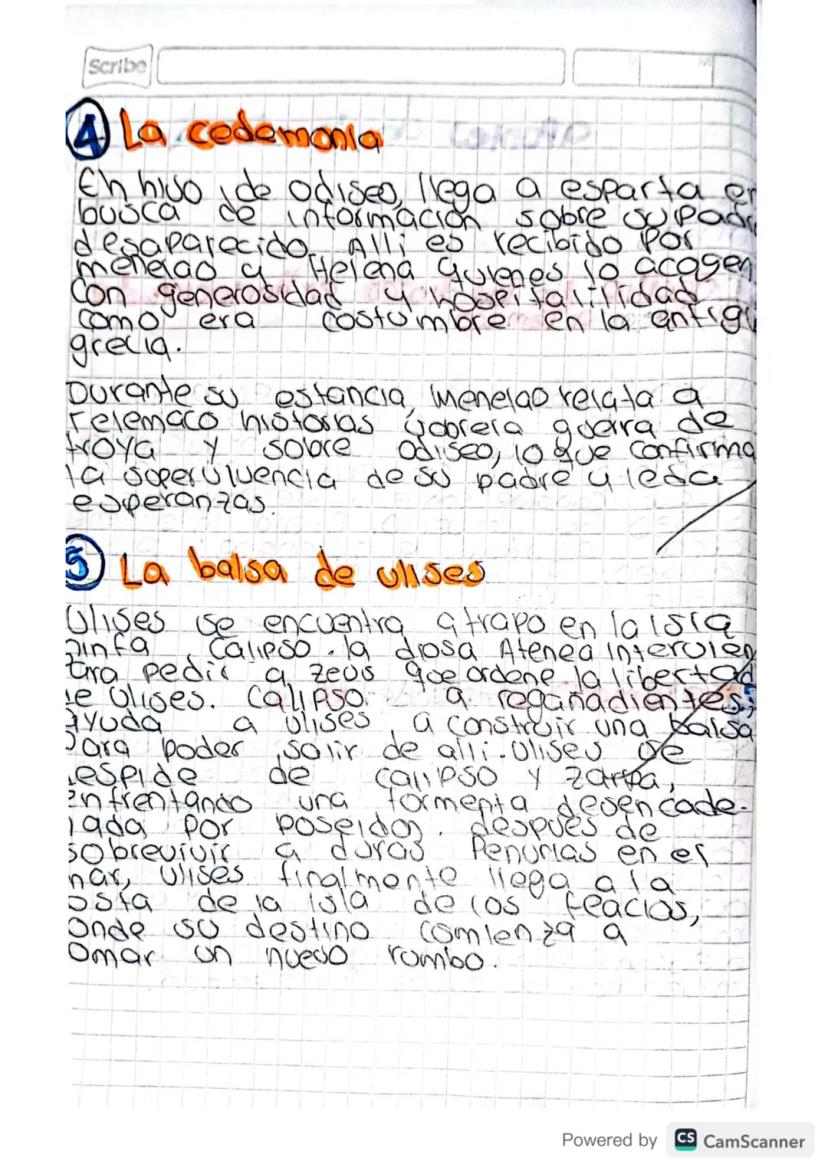 Scribe
4 La cedemonia
Eh hijo de odiseo, llega a esparta en
busca de información sobre su padr
desaparecido. Alli es recibido por
menelao y Helena quienes lo acogen
con generosidad y hospitalilidad
como era costumbre en la antigu
grecia.
Durante su estancia, menelao relata a
Telemaco historias sobrela guerra de
troya y sobre odiseo, lo que confirma
la superviuencia de su padre y leda
esperanzas.
5 La balsa de ulises
Ulises se encuentra atrapo en la isla
ninfa Calipso. la diosa Atenea intervien
para pedir a zeus que ordene la libertad
de Ulises. Calipso a regañadientes,
ayuda a ulises a construir una balsa
para poder salir de alli. Ulises se
despide de calipso y zarpa,
enfrentando una tormenta desencade-
nada por poseidon. después de
sobrevivir a duras Penurias en el
mar, Ulises finalmente llega a la
osta de la isla de los feacios,
onde su destino comienza a
omar un nuevo rumbo.
Powered by CS CamScanner